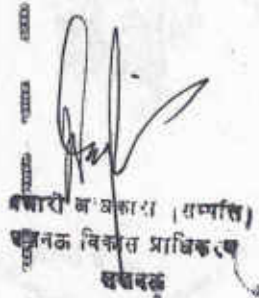 प्रभारी अधिकारी (सम्पत्ति)
लखनऊ विकास प्राधिकरण
लखनऊ